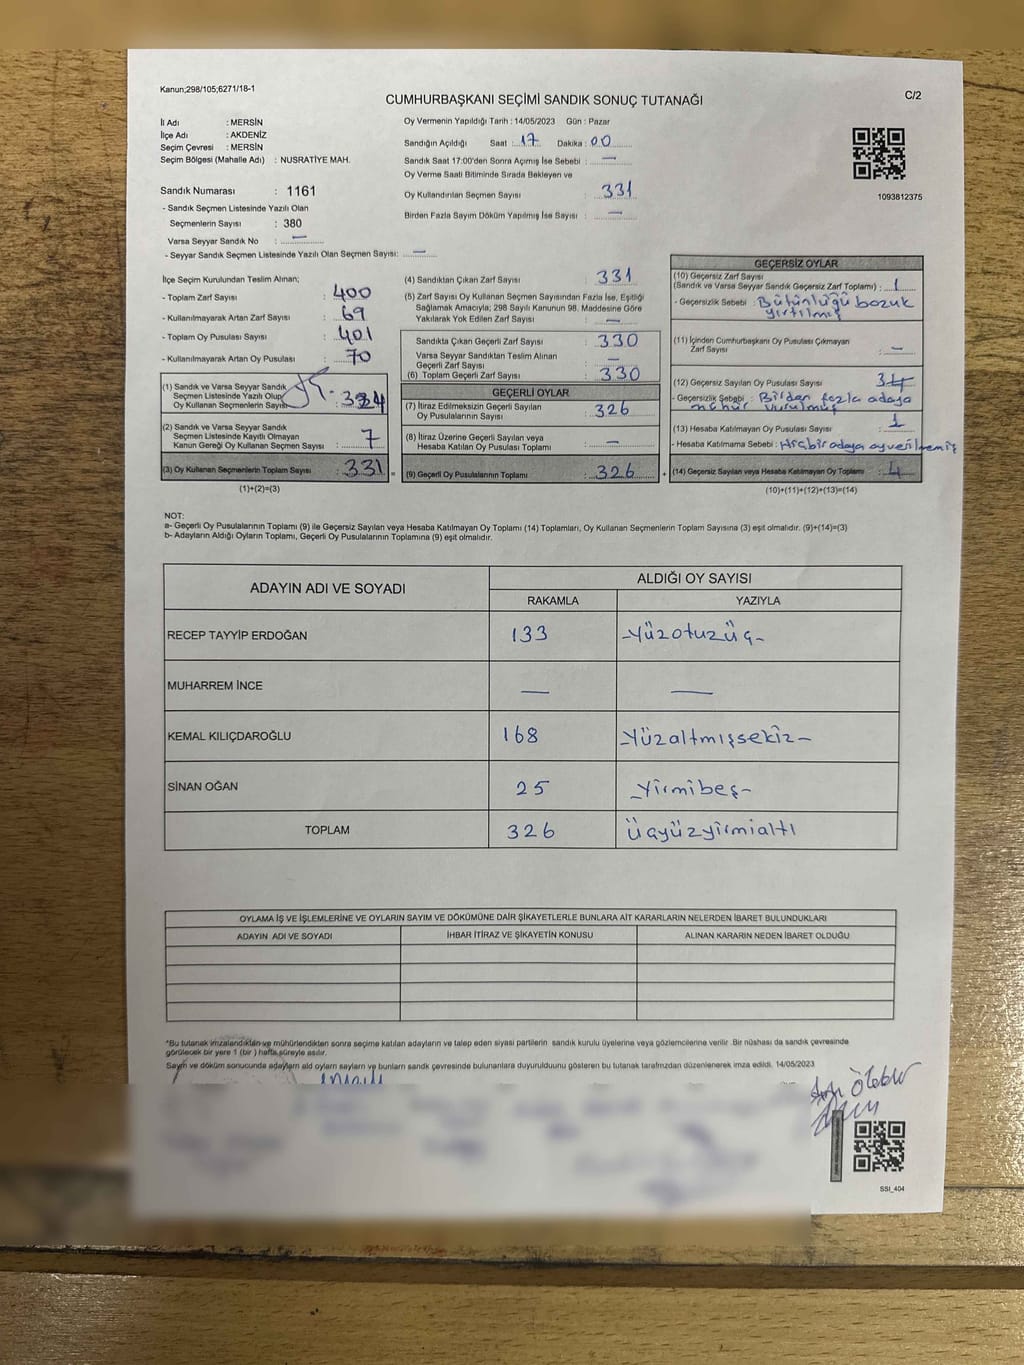 Kanun;298/105;6271/18-1
CUMHURBAŞKANI SEÇİMİ SANDIK SONUÇ TUTANAĞI
C/2
İl Adı : MERSİN
İlçe Adı : AKDENİZ
Seçim Çevresi : MERSİN
Seçim Bölgesi (Mahalle Adı) : NUSRATİYE MAH.
Sandık Numarası : 1161
- Sandık Seçmen Listesinde Yazılı Olan
Seçmenlerin Sayısı : 380
Varsa Seyyar Sandık No : —
- Seyyar Sandık Seçmen Listesinde Yazılı Olan Seçmen Sayısı: —
Oy Vermenin Yapıldığı Tarih : 14/05/2023 Gün : Pazar
Sandığın Açıldığı Saat : 17 Dakika : 00
Sandık Saat 17:00'den Sonra Açımış İse Sebebi : —
Oy Verme Saati Bitiminde Sırada Bekleyen ve
Oy Kullandırılan Seçmen Sayısı : 331
Birden Fazla Sayım Döküm Yapılmış İse Sayısı : —
1093812375
İlçe Seçim Kurulundan Teslim Alınan;
- Toplam Zarf Sayısı : 400
- Kullanılmayarak Artan Zarf Sayısı : 69
- Toplam Oy Pusulası Sayısı : 401
- Kullanılmayarak Artan Oy Pusulası : 70
(1) Sandık ve Varsa Seyyar Sandık
Seçmen Listesinde Yazılı Olup
Oy Kullanan Seçmenlerin Sayısı :
(2) Sandık ve Varsa Seyyar Sandık
Seçmen Listesinde Kayıtlı Olmayan
Kanun Gereği Oy Kullanan Seçmen Sayısı : 7
(3) Oy Kullanan Seçmenlerin Toplam Sayısı : 331 =
(1)+(2)=(3)
(4) Sandıktan Çıkan Zarf Sayısı : 331
(5) Zarf Sayısı Oy Kullanan Seçmen Sayısından Fazla İse, Eşitliği
Sağlamak Amacıyla; 298 Sayılı Kanunun 98. Maddesine Göre
Yakılarak Yok Edilen Zarf Sayısı : —
Sandıkta Çıkan Geçerli Zarf Sayısı : 330
Varsa Seyyar Sandıktan Teslim Alınan
Geçerli Zarf Sayısı : —
(6) Toplam Geçerli Zarf Sayısı : 330
GEÇERLİ OYLAR
(7) İtiraz Edilmeksizin Geçerli Sayılan
Oy Pusulalarının Sayısı : 326
(8) İtiraz Üzerine Geçerli Sayılan veya
Hesaba Katılan Oy Pusulası Sayısı : —
(9) Geçerli Oy Pusulalarının Toplamı : 326 +
GEÇERSİZ OYLAR
(10) Geçersiz Zarf Sayısı
(Sandık ve Varsa Seyyar Sandık Geçersiz Zarf Toplamı) : 1
- Geçersizlik Sebebi : Bütünlüğü bozuk
yırtılmış
(11) İçinden Cumhurbaşkanı Oy Pusulası Çıkmayan
Zarf Sayısı : —
(12) Geçersiz Sayılan Oy Pusulası Sayısı
- Geçersizlik Sebebi : Birden fazla adaya
mühür vurulmuş
(13) Hesaba Katılmayan Oy Pusulası Sayısı : 1
- Hesaba Katılmama Sebebi : Hiçbir adaya oy verilmemiş
(14) Geçersiz Sayılan veya Hesaba Katılmayan Oy Toplamı : 4
(10)+(11)+(12)+(13)=(14)
NOT:
a- Geçerli Oy Pusulalarının Toplamı (9) ile Geçersiz Sayılan veya Hesaba Katılmayan Oy Toplamı (14) Toplamları, Oy Kullanan Seçmenlerin Toplam Sayısına (3) eşit olmalıdır. (9)+(14)=(3)
b- Adayların Aldığı Oyların Toplamı, Geçerli Oy Pusulalarının Toplamına (9) eşit olmalıdır.
ADAYIN ADI VE SOYADI ALDIĞI OY SAYISI
RAKAMLA YAZIYLA
RECEP TAYYİP ERDOĞAN 133 -Yüzotuzüç-
MUHARREM İNCE — —
KEMAL KILIÇDAROĞLU 168 -Yüzaltmışsekiz-
SİNAN OĞAN 25 -Yirmibeş-
TOPLAM 326 Üçyüzyirmialtı
OYLAMA İŞ VE İŞLEMLERİNE VE OYLARIN SAYIM VE DÖKÜMÜNE DAİR ŞİKAYETLERLE BUNLARA AİT KARARLARIN NELERDEN İBARET BULUNDUKLARI
ADAYIN ADI VE SOYADI İHBAR İTİRAZ VE ŞİKAYETİN KONUSU ALINAN KARARIN NEDEN İBARET OLDUĞU
*Bu tutanak imzalandıktan ve mühürlendikten sonra seçime katılan adayların ve talep eden siyasi partilerin sandık kurulu üyelerine veya gözlemcilerine verilir .Bir nüshası da sandık çevresinde
görülecek bir yere 1 (bir ) hafta süreyle asılır.
Sayım ve döküm sonucunda adayların ald oyların sayların ve bunların sandık çevresinde bulunanlara duyurulduunu gösteren bu tutanak tarafımzdan düzenlenerek imza edildi. 14/05/2023
SSI_404